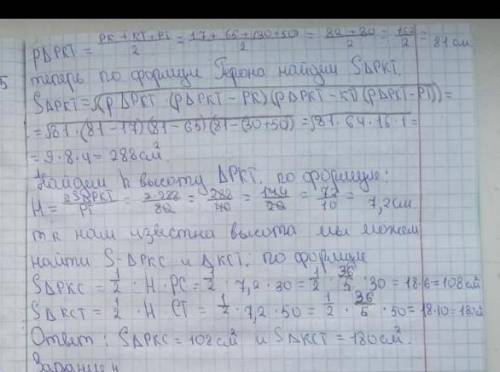 pΔPKT = PK + KT + PT / 2 = 17 + 65 + (30+50) / 2 = 82 + 80 / 2 = 162 / 2 = 81 см
теперь по формуле Герона найдём SΔPKT.
SΔPKT = √(pΔPKT (pΔPKT - PK)(pΔPKT - KT)(pΔPKT - PT)) =
= √81 · (81-17)(81-65)(81-(30+50)) = √81 · 64 · 16 · 1 =
= 9 · 8 · 4 = 288 см²
Найдём h высоту ΔPKT. по формуле:
H = 2SΔPKT / PT = 2·288 / 80 = 288 / 40 = 144 / 20 = 72 / 10 = 7,2 см
тк нам известна высота мы можем
найти S-ΔPKC и ΔKCT. по формуле
SΔPKC = 1/2 · H · PC = 1/2 · 7,2 · 30 = 1/2 · 36/5 · 30 = 18·6 = 108 см²
SΔKCT = 1/2 · H · CT = 1/2 · 7,2 · 50 = 1/2 · 36/5 · 50 = 18·10 = 180
Ответ: SΔPKC = 108 см² и SΔKCT = 180 см².
Задание 4